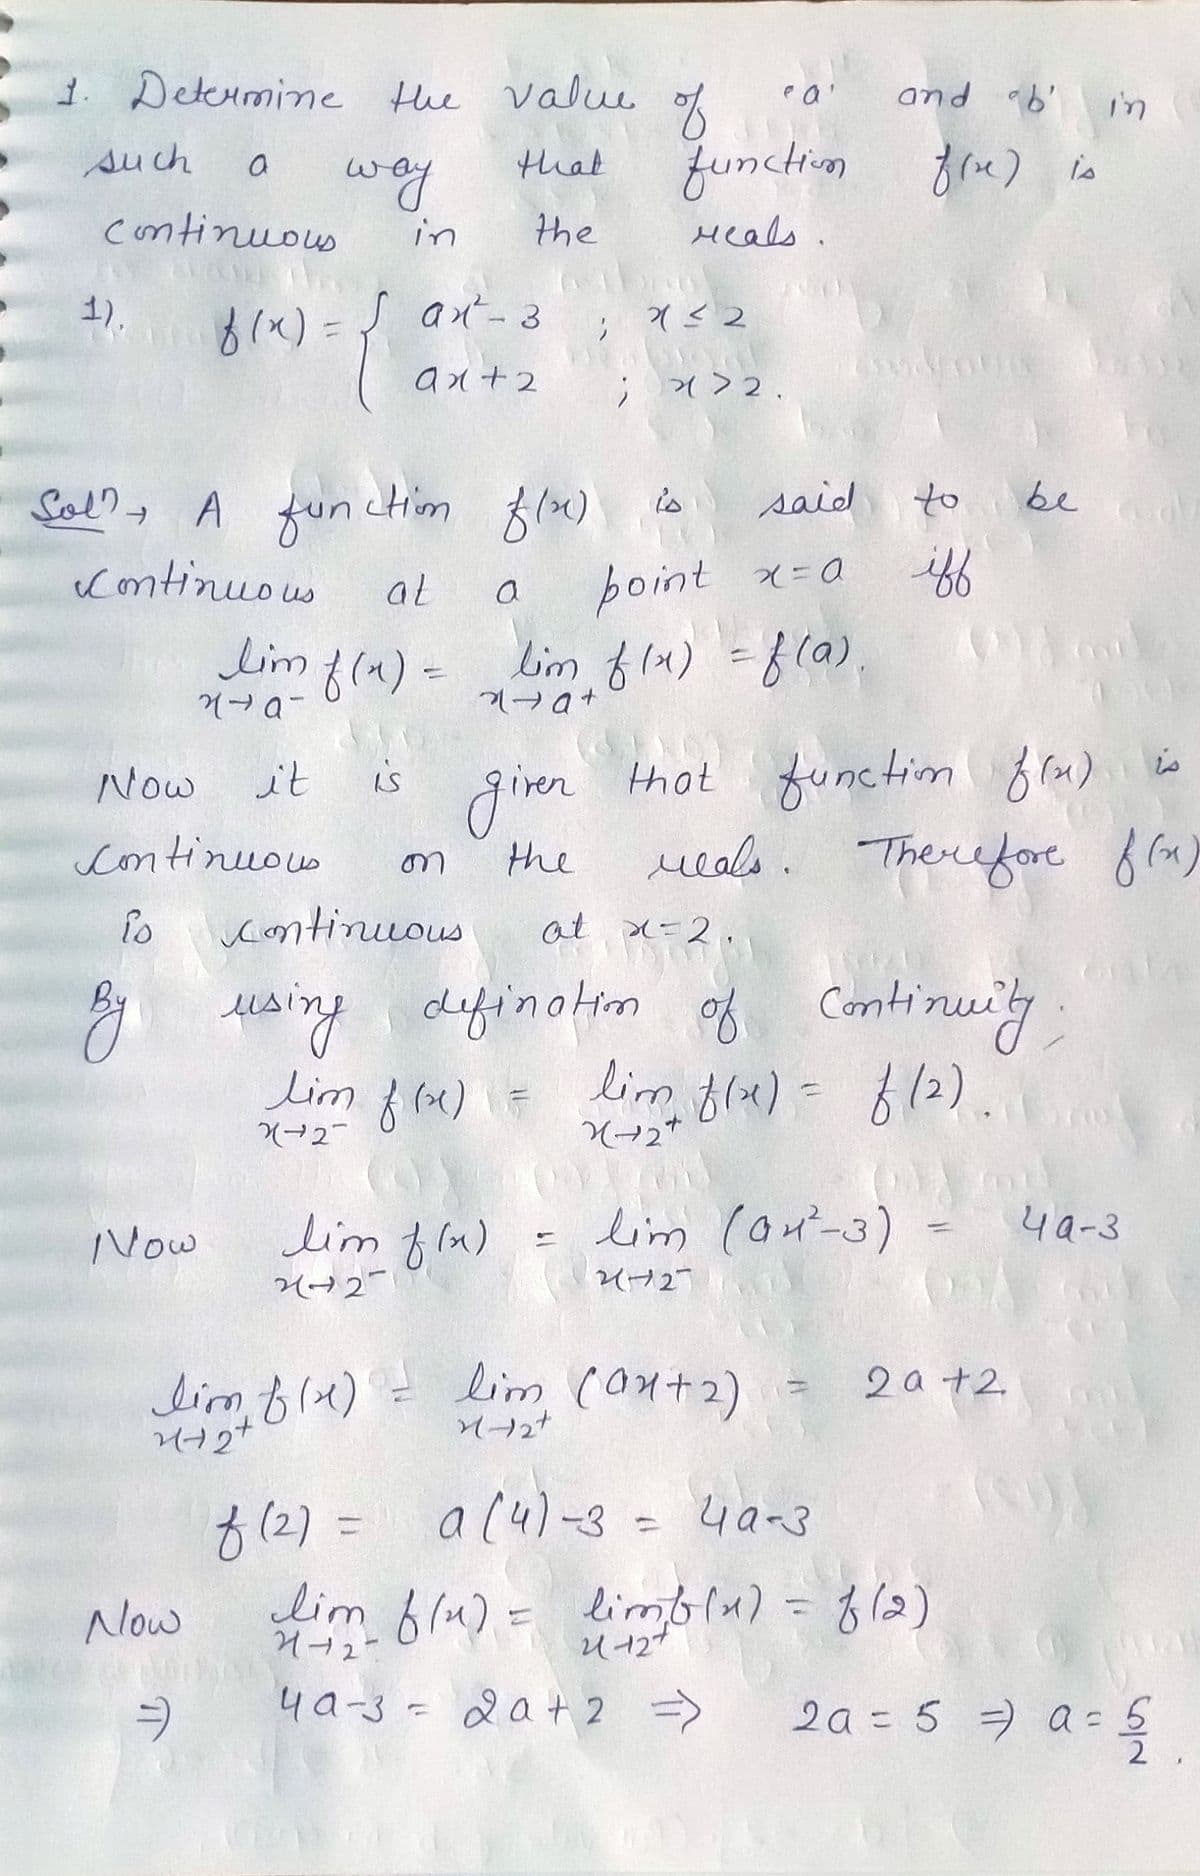 1. Determine the value of 'a' and 'b' in
such a way that function f(x) is
continuous in the reals.
1). f(x) = { ax²-3 ; x ≤ 2
ax+2 ; x > 2.
Solⁿ→ A function f(x) is said to be
continuous at a point x=a iff
lim f(x) = lim f(x) = f(a).
x→a- x→a+
Now it is given that function f(x) is
continuous on the reals. Therefore f(x)
is continuous at x=2.
By using defination of Continuity;
lim f(x) = lim f(x) = f(2).
x→2⁻ x→2⁺
Now lim f(x) = lim (ax²-3) = 4a-3
x→2⁻ x→2⁻
lim f(x) = lim (ax+2) = 2a+2
x→2⁺ x→2⁺
f(2) = a(4)-3 = 4a-3
Now lim f(x) = lim f(x) = f(2)
x→2⁻ x→2⁺
⇒ 4a-3 = 2a+2 ⇒ 2a = 5 ⇒ a = 5/2.